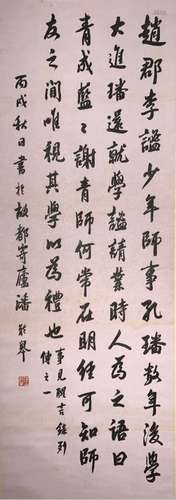 趙郡李謐少年師事孔璠數年後學
大進璠還就學謐請業時人為之語曰
青成藍〻謝青師何常在明經可知師
友之間唯視其學以為禮也
事見
傳之一
丙戌秋日書於故都寄廬潘齡皋